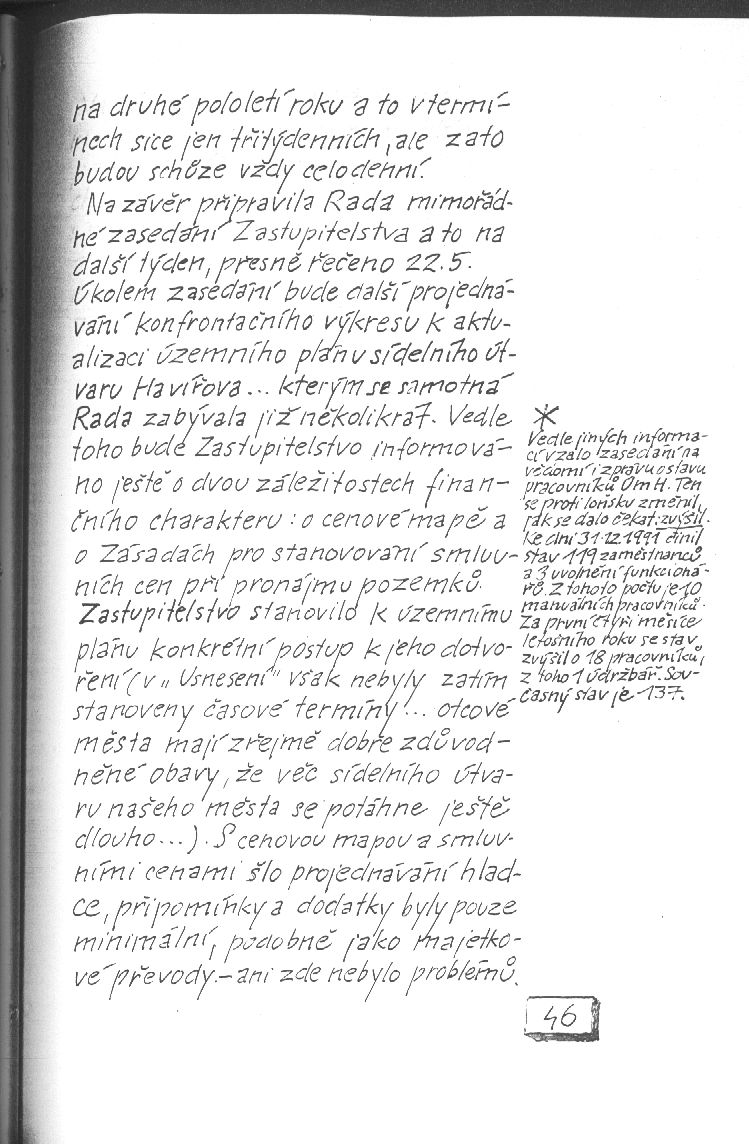 na druhé pololetí roku a to v termí-
nech sice jen třítýdenních, ale zato
budou schůze vždy celodenní.
Na závěr připravila Rada mimořád-
né zasedání Zastupitelstva a to na
další týden, přesně řečeno 22.5.
Úkolem zasedání bude další projedná-
vání konfrontačního výkresu k aktu-
alizaci územního plánu sídelního út-
varu Havířova... kterým se samotná
Rada zabývala již několikrát. Vedle
toho bude Zastupitelstvo informová-
no ještě o dvou záležitostech finan-
čního charakteru: o cenové mapě a
o Zásadách pro stanovování smluv-
ních cen při pronájmu pozemků.
Zastupitelstvo stanovilo k územnímu
plánu konkrétní postup k jeho dotvo-
ření (v „Usnesení" však nebyly zatím
stanoveny časové termíny... otcové
města mají zřejmě dobře zdůvod-
něné obavy, že věc sídelního útva-
ru našeho města se potáhne ještě
dlouho...). S cenovou mapou a smluv-
ními cenami šlo projednávání hlad-
ce, připomínky a dodatky byly pouze
minimální, podobně jako majetko-
vé převody.-ani zde nebylo problémů.
*
Vedle jiných informa-
cí vzalo zasedání na
vědomí i zprávu o stavu
pracovníků ÚmH. Ten
se proti loňsku změnil,
jak se dalo čekat: zvýšil.
Ke dni 31.12.1991 činil
stav 119 zaměstnanců
a 3 uvolnění funkcioná-
ři. Z tohoto počtu je 10
manuálních pracovníků.
Za první čtyři měsíce
letošního roku se stav
zvýšil o 18 pracovníků,
z toho 1 údržbář. Sou-
časný stav je 137.
46